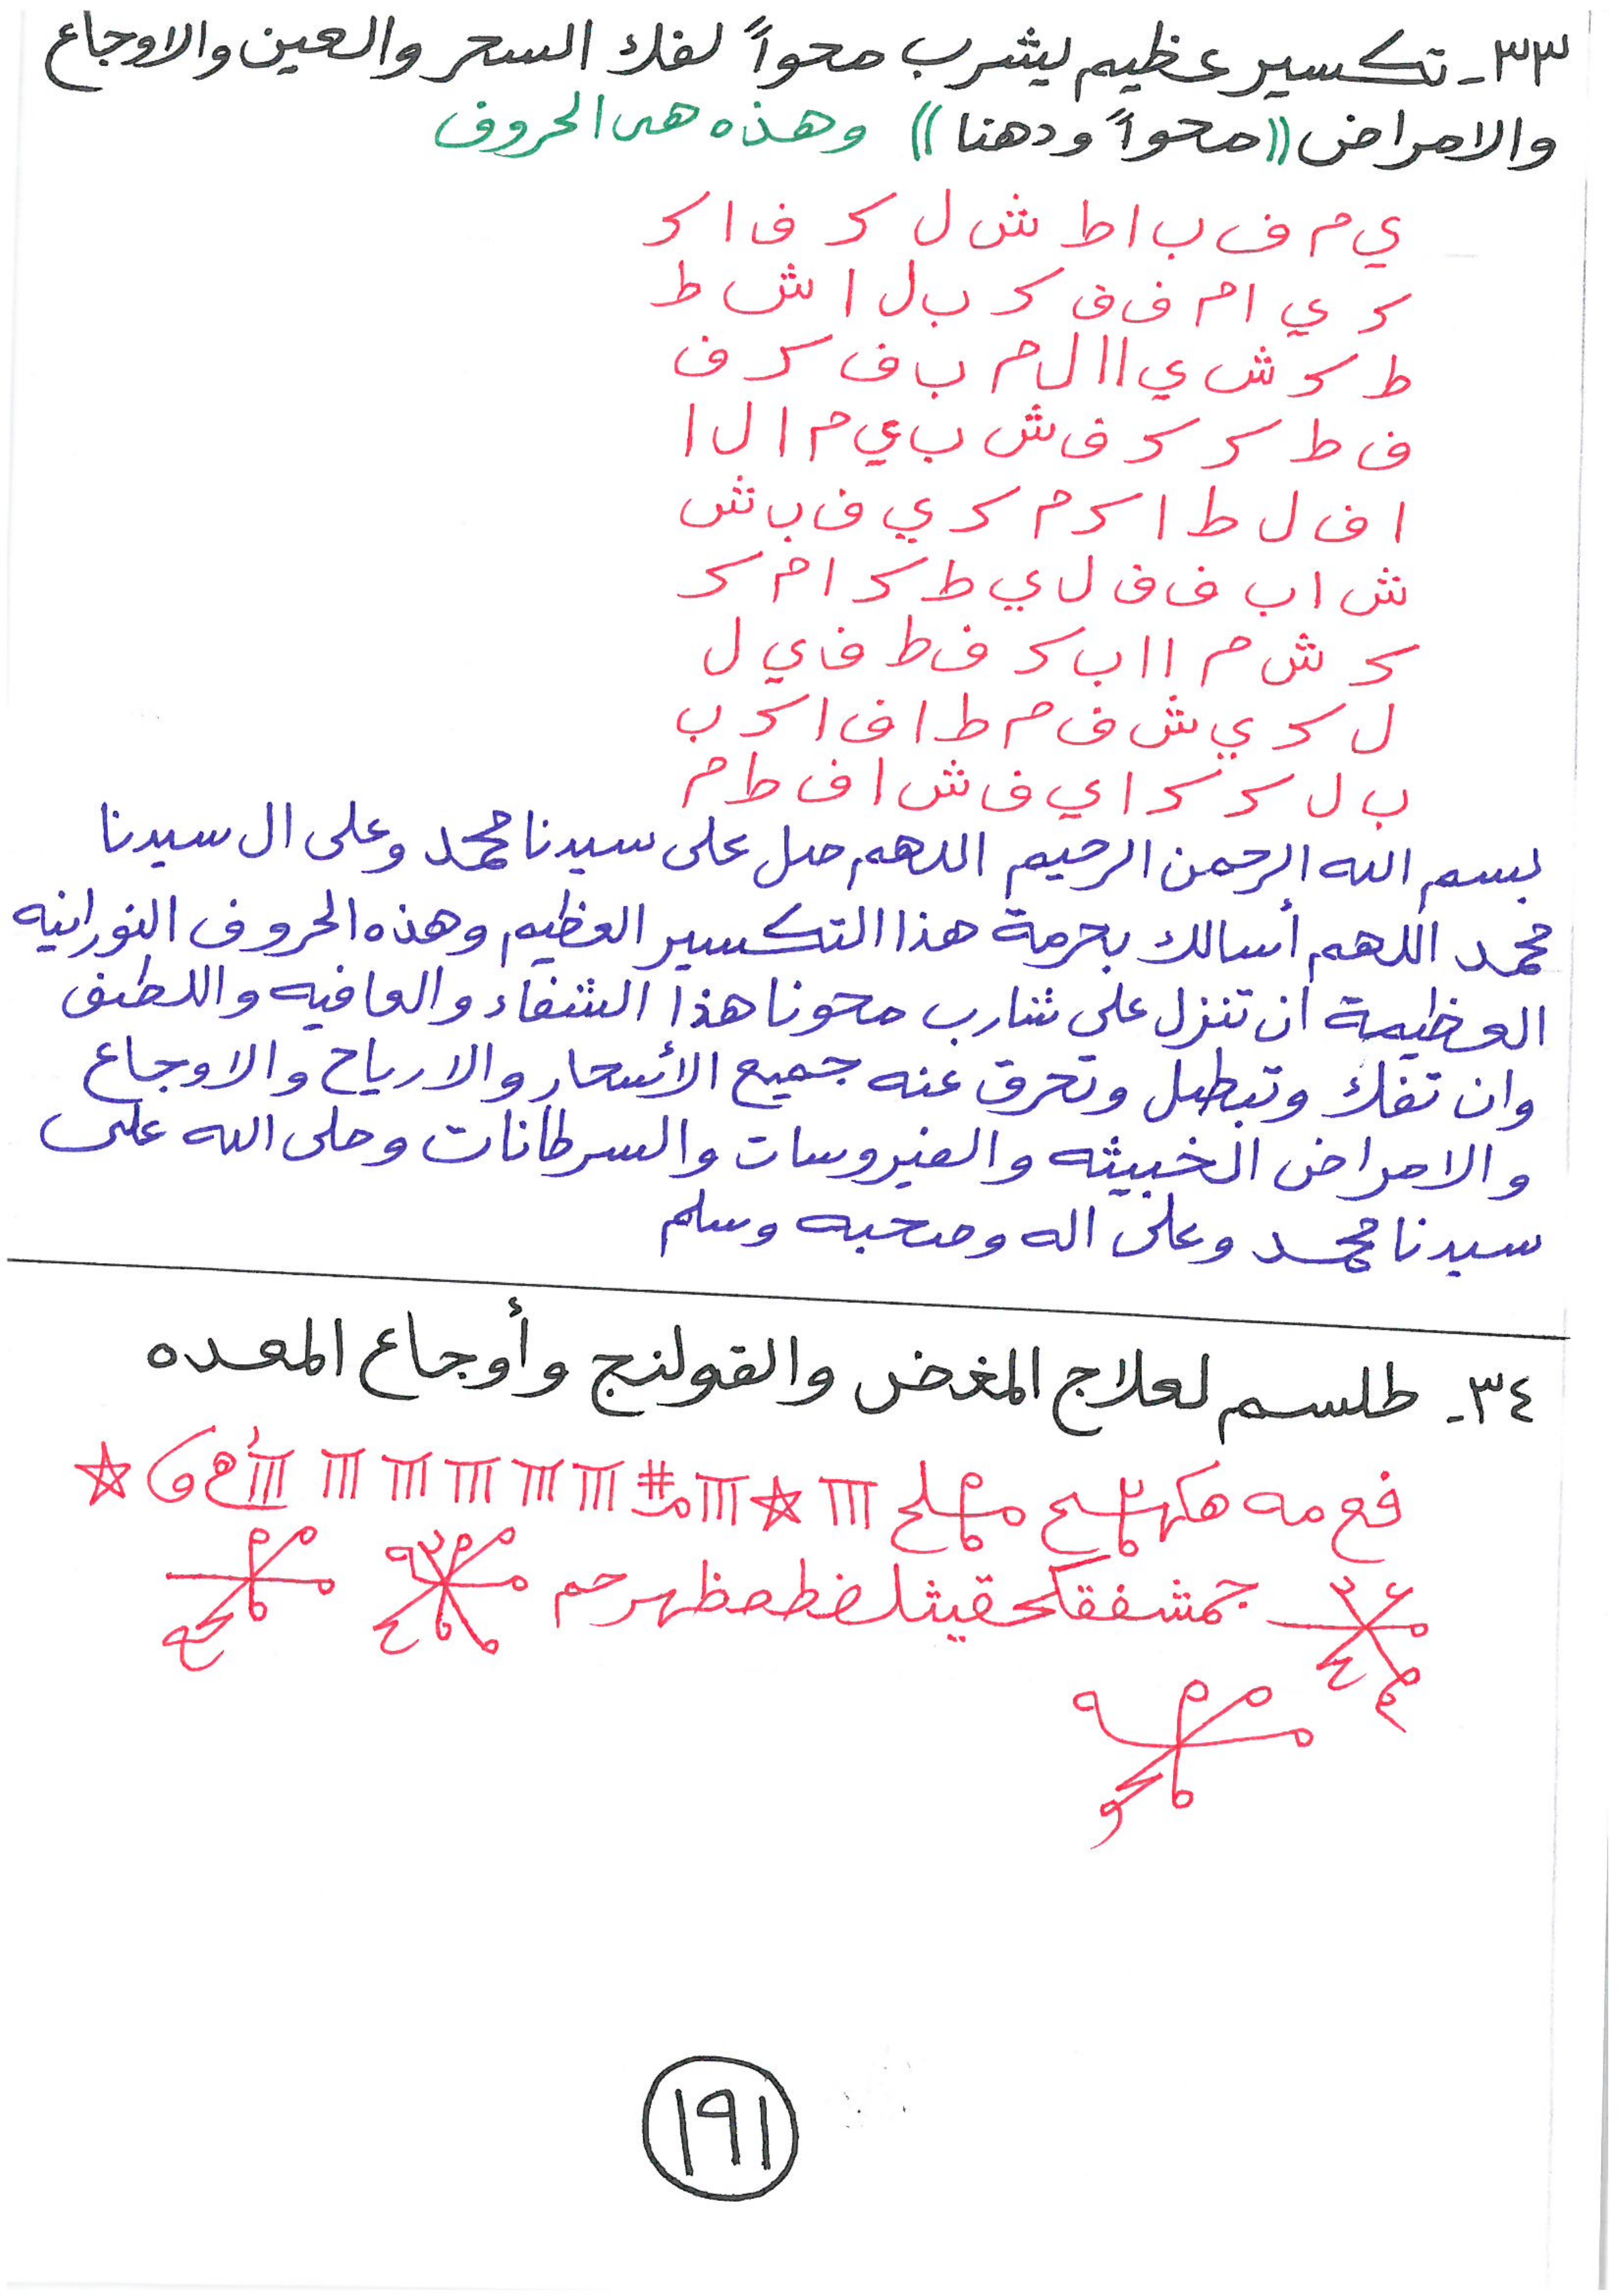 ٣٣- تكسير عظيم ليشرب محواً لفك السحر والعين والاوجاع
والامراض ((محواً ودهنا)) وهذه هى الحروف
ي م ف ب ا ط ش ل ك ف ا ك
ك ي ا م ف ف ك ب ل ا ش ط
ط ك ش ي ا ا ل م ب ف ك ف
ف ط ك ك ف ش ب ي م ا ل ا
ا ف ل ط ا ك م ك ي ف ب ش
ش ا ب ف ف ل ي ط ك ا م ك
ك ش م ا ا ب ك ف ط ف ي ل
ل ك ي ش ف م ط ا ف ا ك ب
ب ل ك ك ا ي ف ش ا ف ط م
بسم الله الرحمن الرحيم اللهم صل على سيدنا محمد وعلى ال سيدنا
محمد اللهم أسالك بحرمة هذا التكسير العظيم وهذه الحروف النورانيه
العظيمة ان تنزل على شارب محونا هذا الشفاء والعافيه واللطف
وان تفك وتبطل وتحرق عنه جميع الأسحار والارياح والاوجاع
والامراض الخبيثه والفيروسات والسرطانات وصلى الله على
سيدنا محمد وعلى اله وصحبه وسلم
٣٤- طلسم لعلاج المغض والقولنج وأوجاع المعده
١٩١